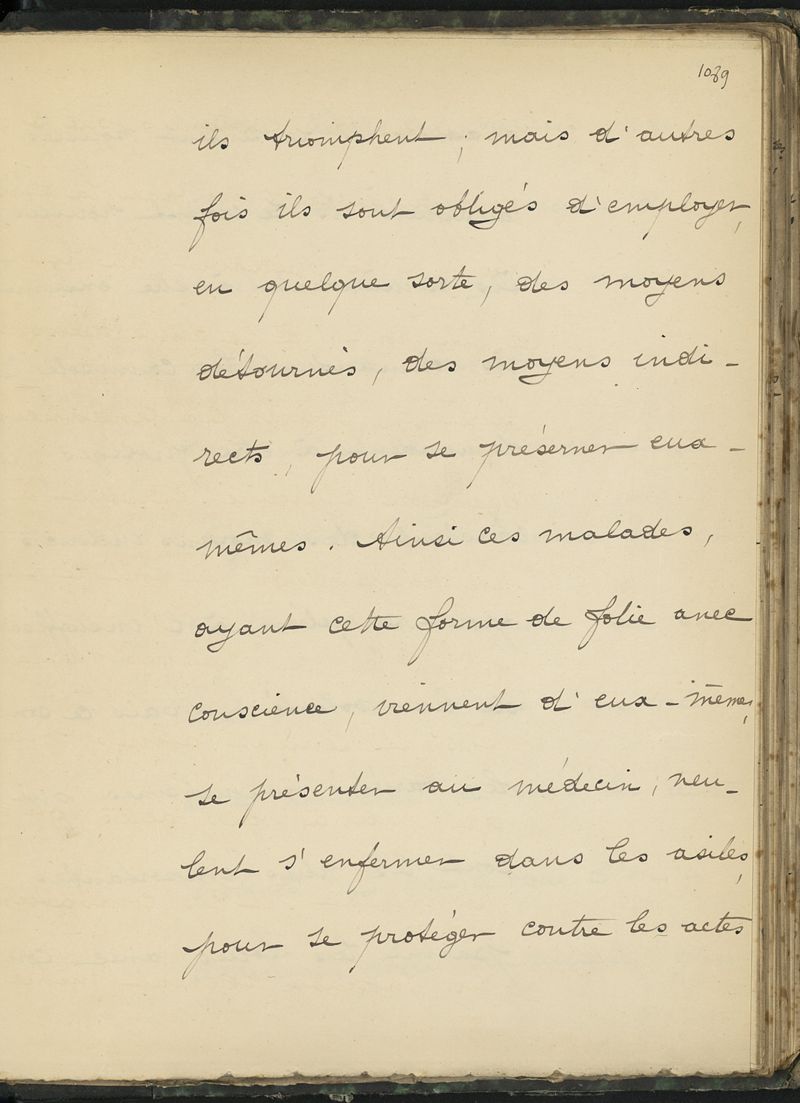 1089
ils triomphent ; mais d'autres
fois ils sont obligés d'employer,
en quelque sorte, des moyens
détournés, des moyens indi-
rects, pour se préserver eux-
mêmes. Ainsi ces malades,
ayant cette forme de folie avec
conscience, viennent d'eux-mêmes,
se présenter au médecin, veu-
lent s'enfermer dans les asiles,
pour se protéger contre les actes